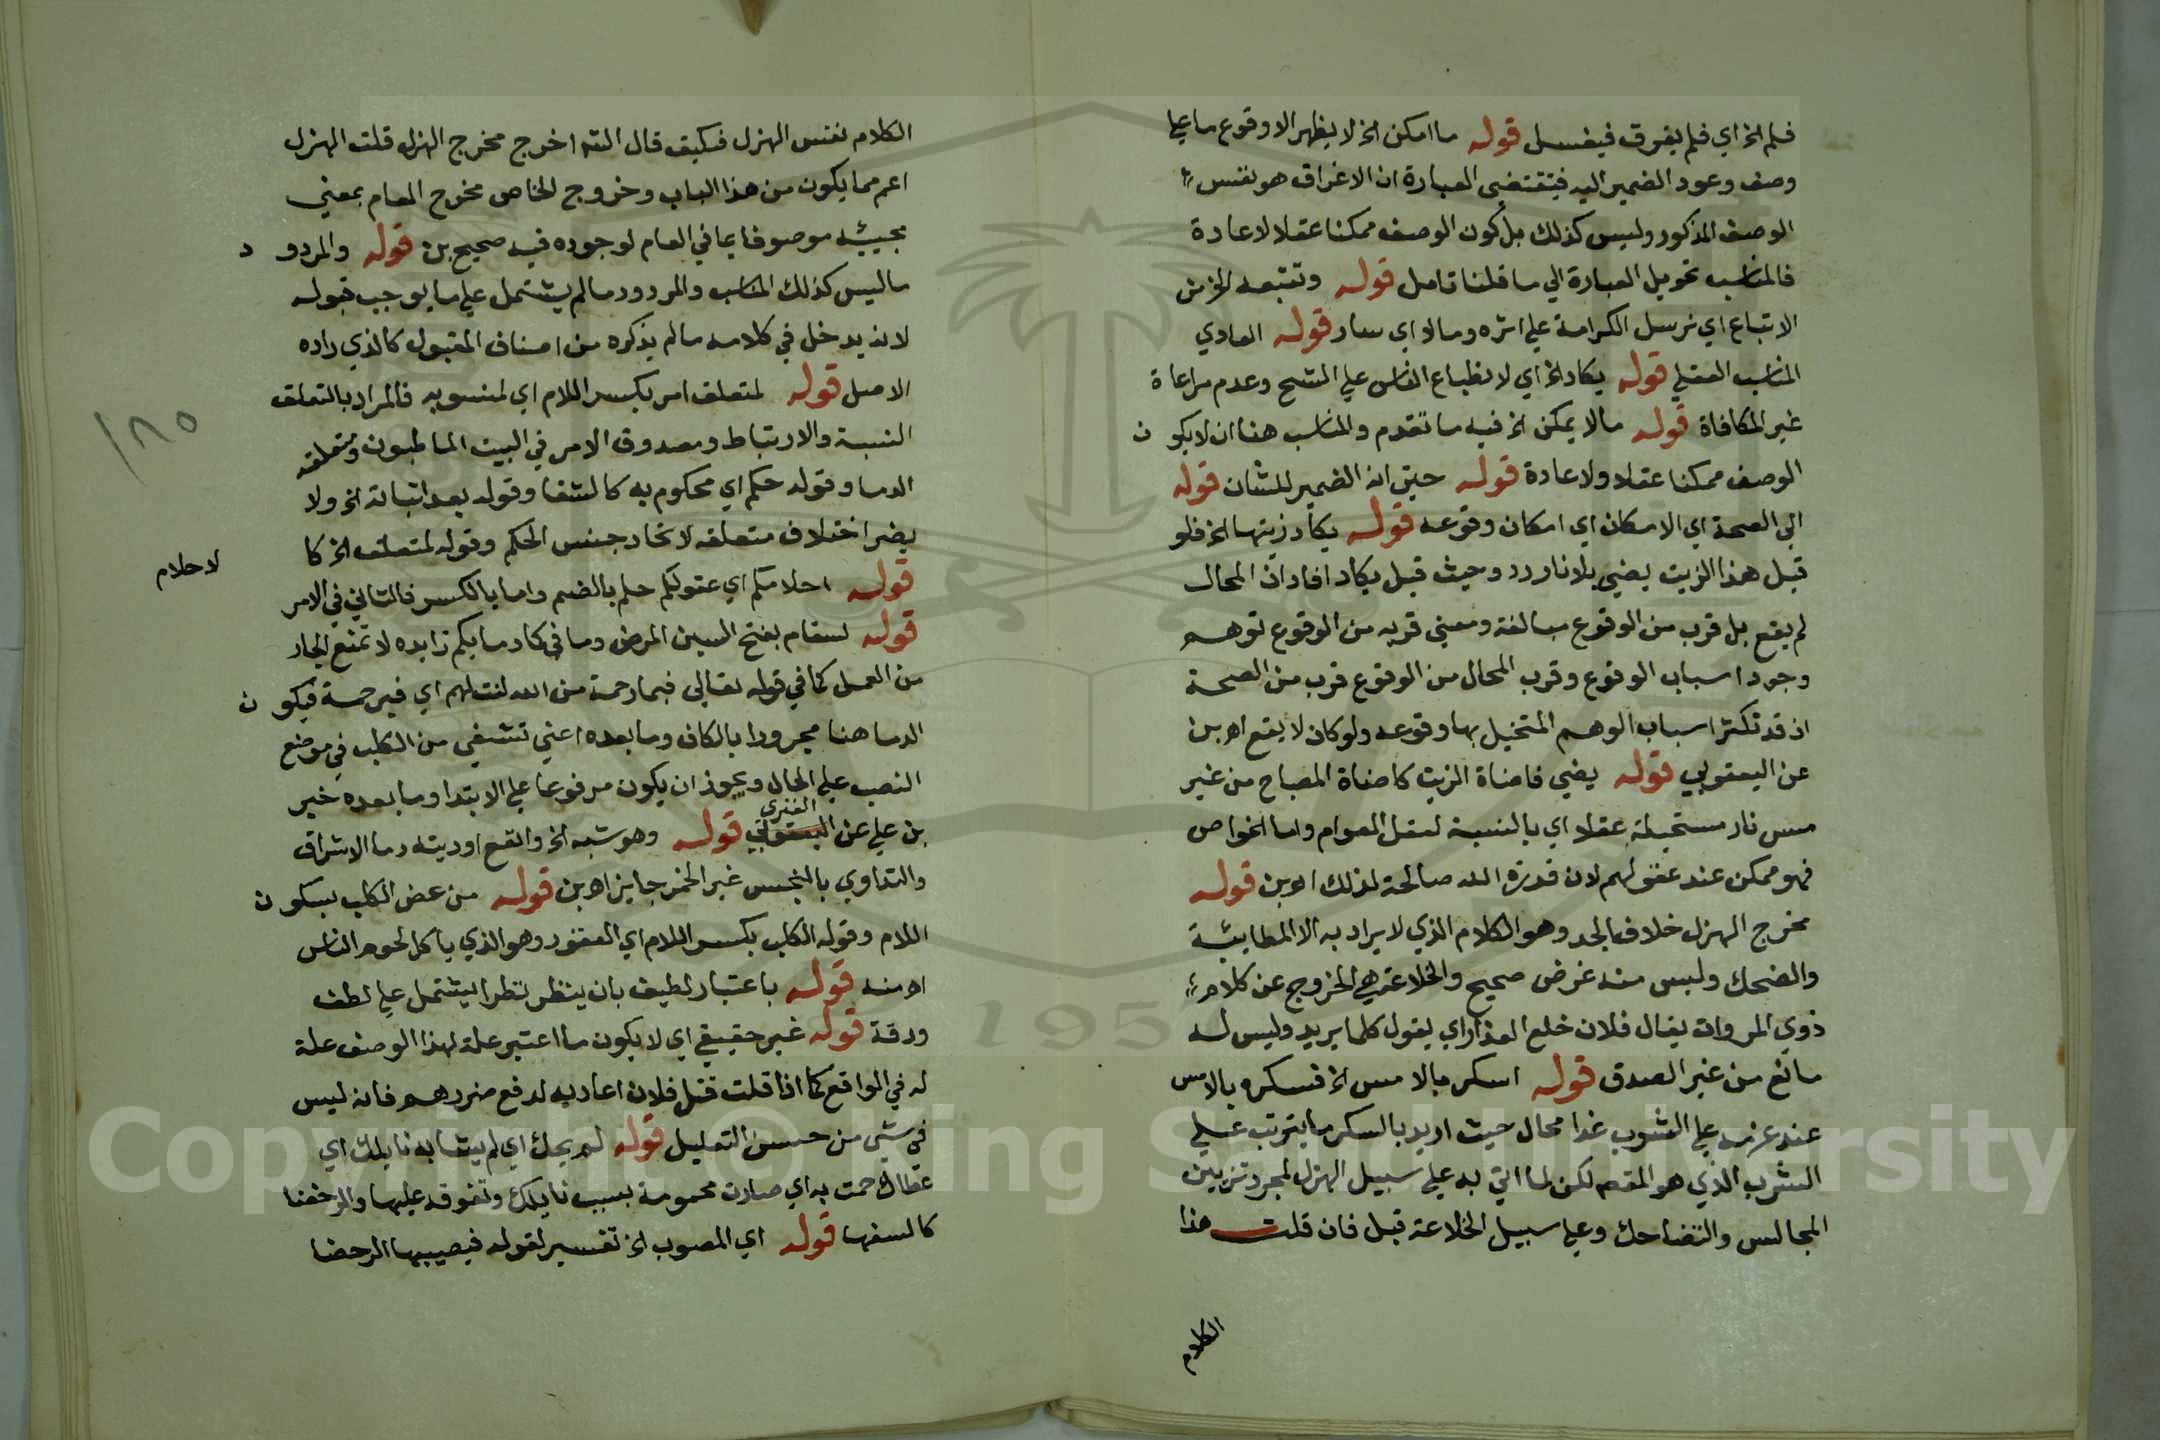 فلم الخ اي فلم يفرق فيغسل قوله ما امكن الخ لا يظهر الا وقوع ما علي
وصف وعود الضمير اليه فيقتضي العبارة ان الاغراق هو نفس
الوصف المذكور وليس كذلك بل كون الوصف ممكنا عقلا لا عادة
فالمناسب تحويل العبارة الي ما قلنا تامل قوله ونتبعه الخ من
الاتباع اي نرسل الكرامة علي اثره ومالا اي سار قوله العادي
المناسب العقلي قوله يكاد الخ اي لانطباع الناس علي الشح وعدم مراعاة
غير المكافاة قوله مالا يمكن الخ فيه ما تقدم والمناسب هنا ان لا يكون
الوصف ممكنا عقلا ولا عادة قوله حتي انه الضمير للشان قوله
الي الصحة اي الامكان اي امكان وقوعه قوله يكاد زيتها الخ فلو
قيل هذا الزيت يضي بلا نار رد وحيث قيل يكاد افاد ان المحال
لم يقع بل قرب من الوقوع مبالغة ومعني قربه من الوقوع توهم
وجود اسباب الوقوع وقرب المحال من الوقوع قرب من الصحة
اذ قد تكثر اسباب الوهم المتخيل بها وقوعه ولو كان لا يقع اه بن
عن اليعقوبي قوله يضي فاضاة الزيت كاضاة المصباح من غير
مس نار مستحيلة عقلا اي بالنسبة لعقل العوام واما الخواص
فهو ممكن عند عقولهم لان قدرة الله صالحة لذلك اه بن قوله
مخرج الهزل خلاف الجد وهو الكلام الذي لا يراد به الا المطايبة
والضحك وليس منه غرض صحيح والخلاعة هي الخروج عن كلام
ذوي المروات يقال فلان خلع العذار اي يقول كلما يريد وليس له
مانع من غير الصدق قوله اسكر بالامس الخ فسكره بالامس
عند عزمه علي الشرب غدا محال حيث اريد بالسكر ما يترتب علي
الشرب الذي هو المقص لكن لما اتي به علي سبيل الهزل لمجرد تزيين
المجالس والتضاحك وعلي سبيل الخلاعة قبل فان قلت هذا
الكلام
الكلام نفس الهزل فكيف قال الشه اخرج مخرج الهزل قلت الهزل
اعم مما يكون من هذا الباب وخروج الخاص مخرج العام بمعني
مجيئه موصوفا بما في العام لوجوده فيه صحيح بن قوله والمردود
ما ليس كذلك المناسب والمردود ما لم يشتمل علي ما يوجب قبوله
لانه يدخل في كلامه ما لم يذكره من اصناف المقبول كالذي زاده
الاصل قوله لمتعلق امر بكسر اللام اي لمنسوبه فالمراد بالتعلق
النسبة والارتباط ومصدوق الامر في البيت المخاطبون ومتعلقه
الدما وقوله حكم اي محكوم به كالشفا وقوله بعد اثباته الخ ولا
يضر اختلاف متعلقه لاتحاد جنس الحكم وقوله لمتعلق الخ كا
لاحلام
قوله احلامكم اي عقولكم حلم بالضم واما بالكسر فالتاني في الامر
قوله لسقام بفتح السين المرض وما في كا دما بكم زايده لا تمنع الجار
من العمل كما في قوله تعالي فبما رحمة من الله لنت لهم اي فبرحمة فيكون
الدما هنا مجرورا بالكاف وما بعده اعني تشفي من الكلب في موضع
النصب علي الحال ويجوز ان يكون مرفوعا علي الابتدا وما بعده خبر
بن علي عن الفنري قوله وهو شبه الخ والقع او ديته دما الاشراف
والتداوي بالنجس غير الخمر جايز اه بن قوله من عض الكلب بسكون
اللام وقوله الكلب بكسر اللام اي العقور وهو الذي ياكل لحوم الناس
اه منه قوله باعتبار لطيف بان ينظر نظرا يشتمل علي لطف
ودقة قوله غير حقيقي اي لا يكون ما اعتبر علة لهذا الوصف علة
له في الواقع كما اذا قلت قتل فلان اعاديه لدفع ضررهم فانه ليس
في شي من حسن التعليل قوله لم يحك اي لم يشابه نايلك اي
عطاك حمت به اي صارت محمومة بسبب نايلك وتفوقه عليها والرحضا
كالسفها قوله اي المصبوب الخ تفسير لقوله فصبيبها الرحضا
١٨٥
Copyright © King Saud University
195